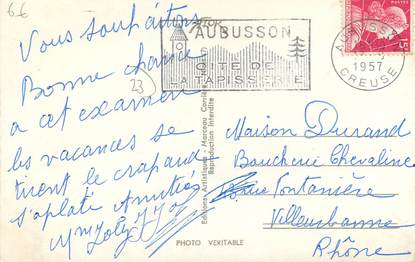 66
Vous souhaitons
Bonne chance
a cet examen
les vacances se
tirent le crapaud
s'aplati Amitiés
Mme Joly
23
AUBUSSON
CITE DE
LA TAPISSERIE
AUBUSSON
1957
CREUSE
POSTES
15F
Editions Artistiques - Marceau Carrière
Reproduction interdite
Maison Durand
Boucherie Chevaline
rue Fontanière
Villeurbanne
Rhône
PHOTO VERITABLE